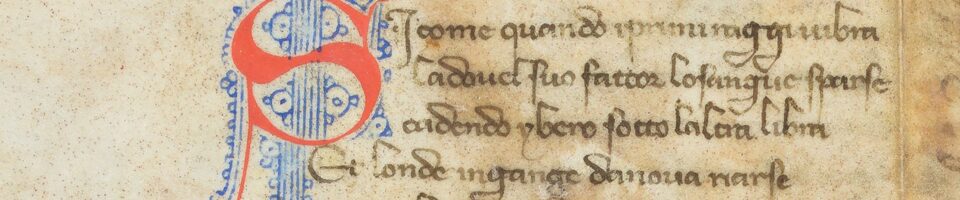 SI come quando iprimi raggi uibra
Ladouel suo fattor losangue sparse
cadendo ybero sotto lalta libra
Et londe ingange danona riarse